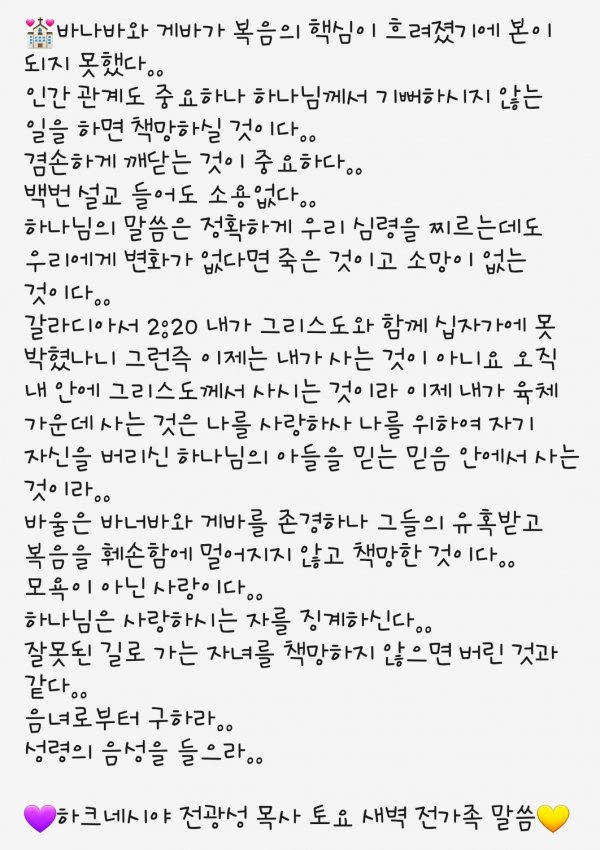 💒바나바와 게바가 복음의 핵심이 흐려졌기에 본이
되지 못했다。。
인간 관계도 중요하나 하나님께서 기뻐하시지 않는
일을 하면 책망하실 것이다。。
겸손하게 깨닫는 것이 중요하다。。
백번 설교 들어도 소용없다。。
하나님의 말씀은 정확하게 우리 심령을 찌르는데도
우리에게 변화가 없다면 죽은 것이고 소망이 없는
것이다。。
갈라디아서 2:20 내가 그리스도와 함께 십자가에 못
박혔나니 그런즉 이제는 내가 사는 것이 아니요 오직
내 안에 그리스도께서 사시는 것이라 이제 내가 육체
가운데 사는 것은 나를 사랑하사 나를 위하여 자기
자신을 버리신 하나님의 아들을 믿는 믿음 안에서 사는
것이라。。
바울은 바너바와 게바를 존경하나 그들의 유혹받고
복음을 훼손함에 멀어지지 않고 책망한 것이다。。
모욕이 아닌 사랑이다。。
하나님은 사랑하시는 자를 징계하신다。。
잘못된 길로 가는 자녀를 책망하지 않으면 버린 것과
같다。。
음녀로부터 구하라。。
성령의 음성을 들으라。。
💜하크네시야 전광성 목사 토요 새벽 전가족 말씀💛